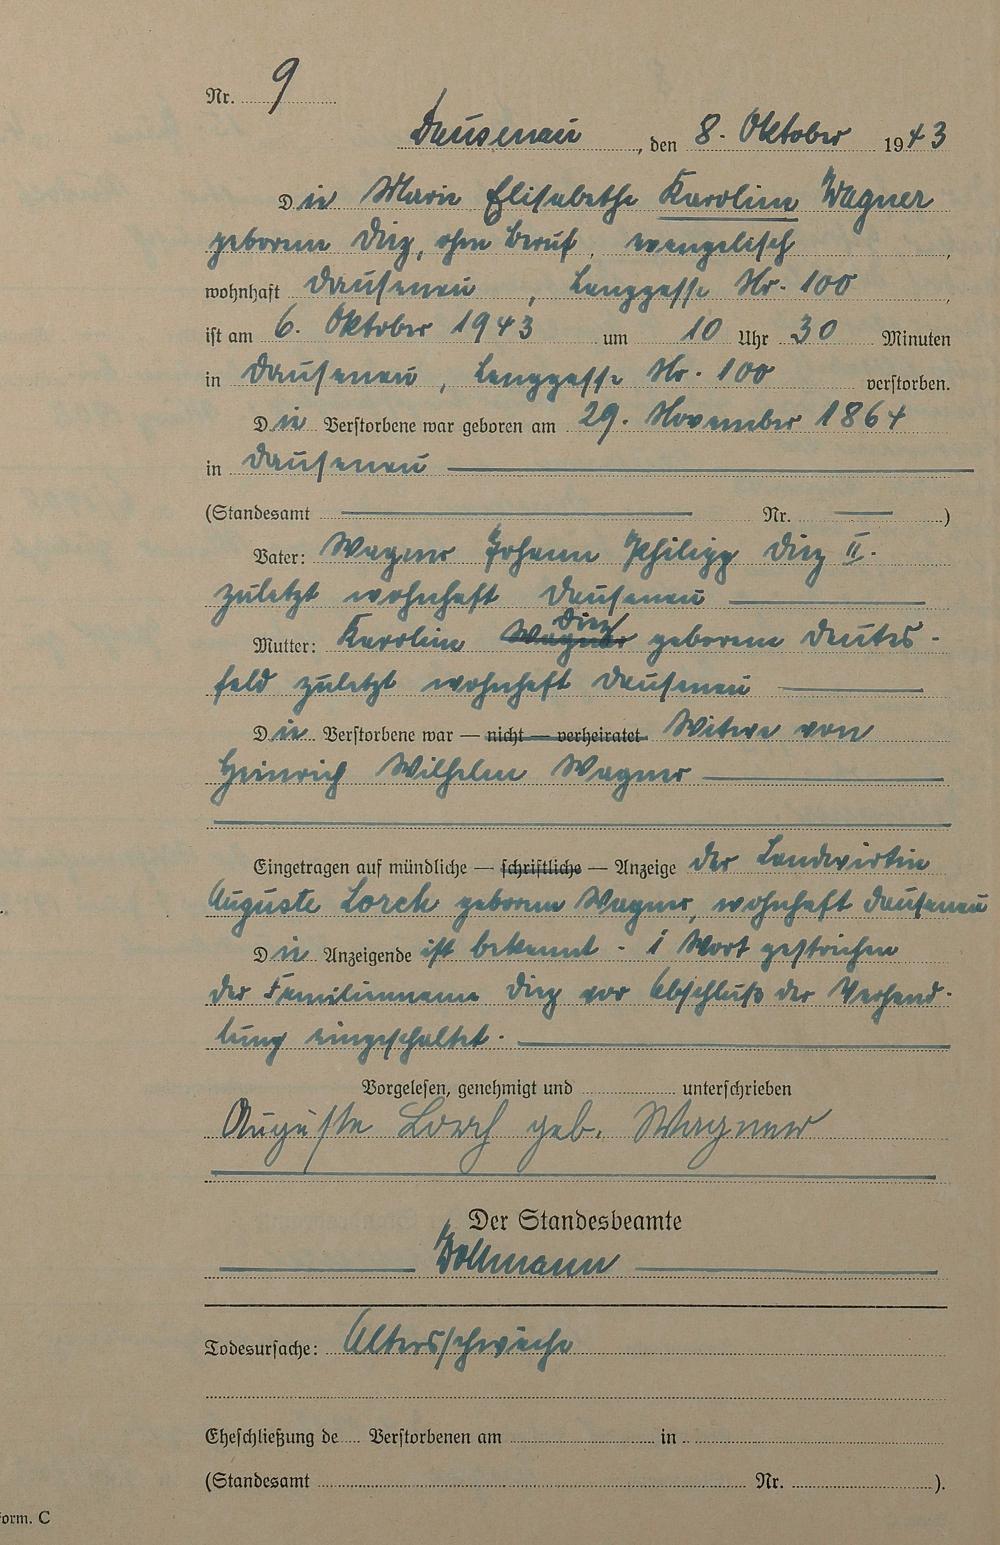 Nr. 9
Dausenau, den 8. Oktober 1943
Die Marie Elisabethe Karoline Wagner
geborene Diez, ohne Beruf, evangelisch,
wohnhaft Dausenau, Langgasse Nr. 100,
ist am 6. Oktober 1943 um 10 Uhr 30 Minuten
in Dausenau, Langgasse Nr. 100 verstorben.
Die Verstorbene war geboren am 29. November 1864
in Dausenau
(Standesamt Nr. )
Vater: Wagner Johann Philipp Diez II.
zuletzt wohnhaft Dausenau
Diez
Mutter: Karoline Wagner geborene Deutes-
feld zuletzt wohnhaft Dausenau
Die Verstorbene war — nicht — verheiratet Witwe von
Heinrich Wilhelm Wagner
Eingetragen auf mündliche — schriftliche — Anzeige der Landwirtin
Auguste Lorch geborene Wagner, wohnhaft Dausenau
Die Anzeigende ist bekannt - 1 Wort gestrichen
der Familienname Diez vor Abschluß der Verhand-
lung eingeschaltet.
Vorgelesen, genehmigt und unterschrieben
Auguste Lorch geb. Wagner
Der Standesbeamte
Todesursache: Altersschwäche
Eheschließung de Verstorbenen am in
(Standesamt Nr. ).
Form. C